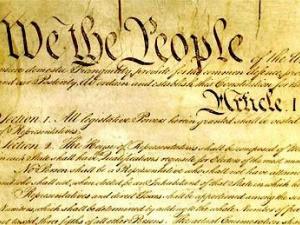 We the People
of the Un
insure domestic Tranquility, provide for the common defence, pro
and our Posterity, do ordain and establish this Constitution for the
Article I
Section 1. All legislative Powers herein granted shall be vested
of Representatives.
Section 2. The House of Representatives shall be composed of
in each State shall have Qualifications requisite for Electors of the most num
No Person shall be a Representative who shall not have attained
who shall not, when elected, be an Inhabitant of that State in which
Representatives and direct Taxes shall be apportioned among the seve
Number of
three fifths of all other Persons. The actual Enumeration